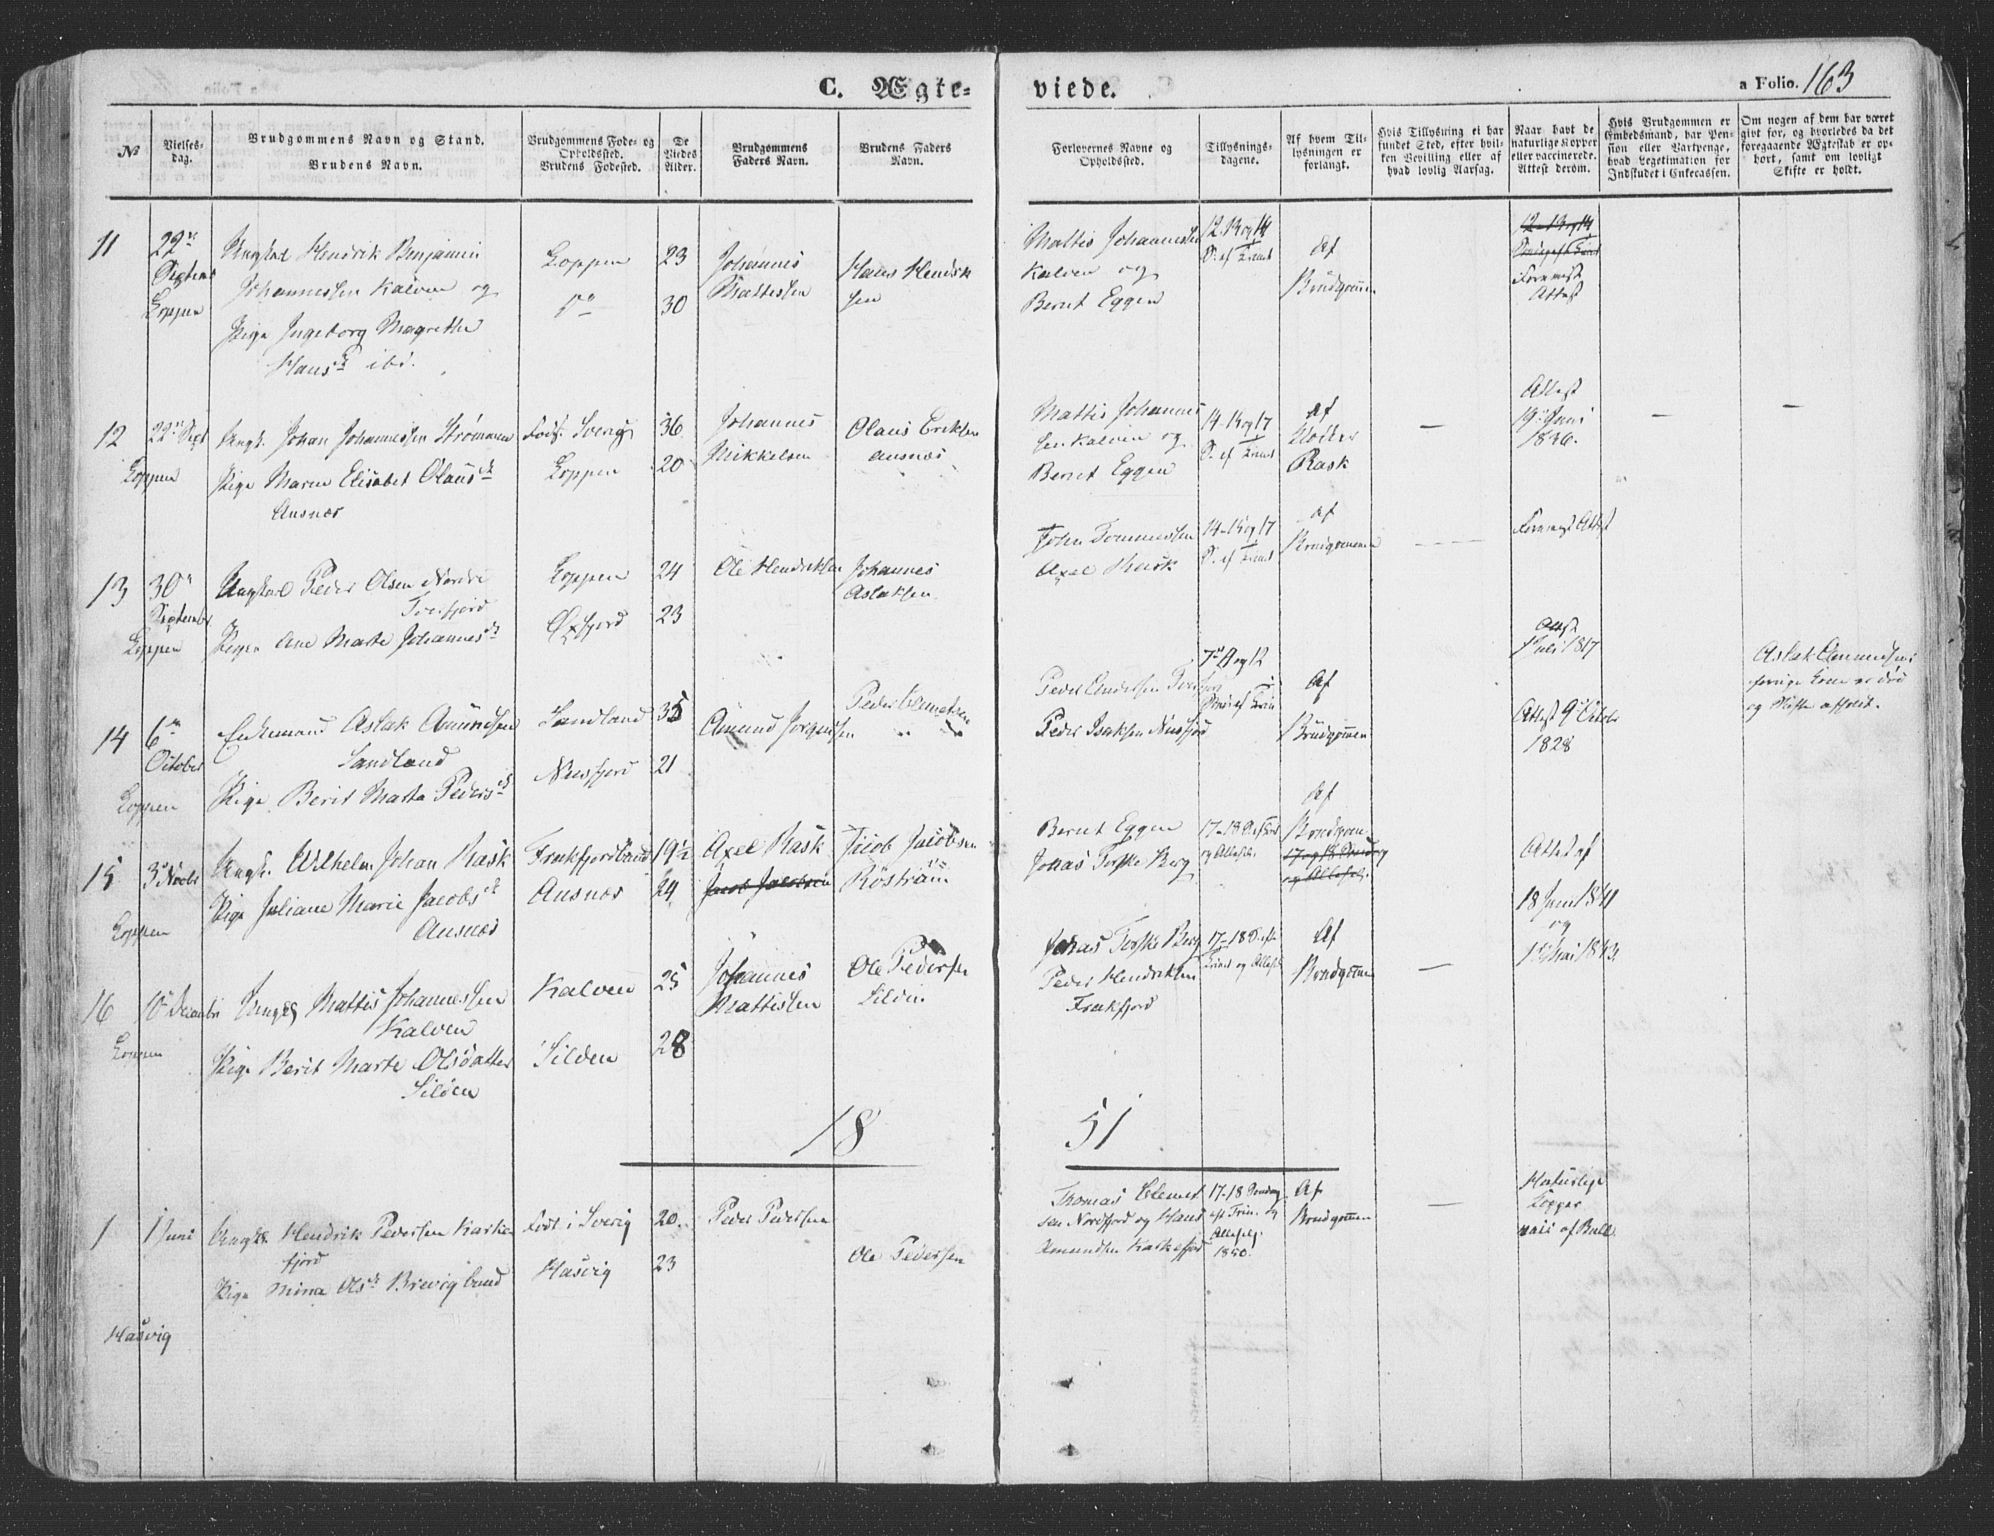 C. Ægte-
viede.
a Folio. 163
No
Vielses-
dag.
Brudgommens Navn og Stand.
Brudens Navn.
Brudgommens Føde- og
Opholdssted.
Brudens Fødested.
De
Viedes
Alder.
Brudgommens
Faders Navn.
Brudens Faders
Navn.
Forlovernes Navne og
Opholdssted.
Tillysnings-
dagene.
Af hvem Til-
lysningen er
forlangt.
Hvis Tillysning ei har
fundet Sted, efter hvil-
ken Bevilling eller af
hvad lovlig Aarsag.
Naar havt de
naturlige Kopper
eller vaccinerede.
Attest derom.
Hvis Brudgommen er
Embedsmand, har Pen-
sion eller Vartpenge,
hvad Legetimation for
Indskudet i Enkecassen.
Om nogen af dem har været
givt før, og hvorledes da det
foregaaende Ægteskab er op-
hørt, samt om lovligt
Skifte er holdt.
11
22de
Septembr
Loppen
Ungkarl Hendrik Benjamin
Johannessen Kalven og
Pige Ingeborg Magrethe
Hansd. ibd.
Loppen
do
23
30
Johannes
Mattissen
Hans Hendrik
sen
Mattis Johannessen
Kalven og
Bernt Eggen
Af
Brudgommen
Forevist
Attest
12
22de Sept
Loppen
Ungk. Johan Johannessen Strømmen
Pige Maren Elisabet Olausd.
Ausnæs
Født. Sverig
Loppen
36
20
Johannes
Mikkelsen
Olaus Eriksen
Ausnæs
Mattis Johannes
sen Kalven og
Bernt Eggen
14-15 og 17
S. ef Trinit
Af
Klokker
Rask
Attest
19 Juni
1836.
13
30te
Septembr.
Loppen
Ungkarl Peder Olsen Nordre
Tverfjord
Pigen Ane Marte Johannesd.
Loppen
Øxfjord
24
23
Ole Hendriksen
Johannes
Aslaksen
John Tommessen
Axel Rask
14-15 og 17
S. ef Trinit
Af
Brudgommen
Forevist Attest
14
6te
October
Loppen
Enkemand Aslak Amundsen
Sandland
Pige Berit Marta Pedersd.
Sandland
Nusfjord
35
21
Amund Jørgensen
Peder Isaksen Nusfjord
Af
Brudgommen
Attest
1 Juli 1817
Attest 9 Octobr
1828
Aslak Amundsens
forrige Kone er død
og Skifte afholdt.
15
3 Novbr
Loppen
Ungk. Wilhelm Johan Rask
Pige Juliane Marie Jacobsd.
Ausnæs
Frakfjordbund
Ausnæs
19½
24
Axel Rask
Jacob Jacobsen
Jacob Jacobsen
Bernt Eggen
Jonas Torske Berg
og Allehelg.
Af
Brudgom-
og Allehelg.
Attest af
18 Juni 1841
og
1 Mai 1843.
16
10 Decembr
Loppen
Ungk. Mattis Johannessen
Kalven
Pige Berit Marte Olsdatter
Silden
Kalven
Silden
25
28
Johannes
Mattissen
Ole Pedersen
Silden
Jonas Torske Berg
Peder Hendriksen
Frakfjord
Af
Brudgommen
18
51
1
1 Juni
Hasvig
Ungk. Hendrik Pedersen Karke
fjord
Pige Mina Olsd. Brevigbund
Født i Sverig
Hasvig
20.
23
Peder Pedersen
Ole Pedersen
Thomas Clemet
sen Nordfjord og Hans
Amundsen Karkefjord
17-18 Søndag
eft Trin. og
Allehelg.
1850.
Af
Brudgommen
Naturlige
Kopper